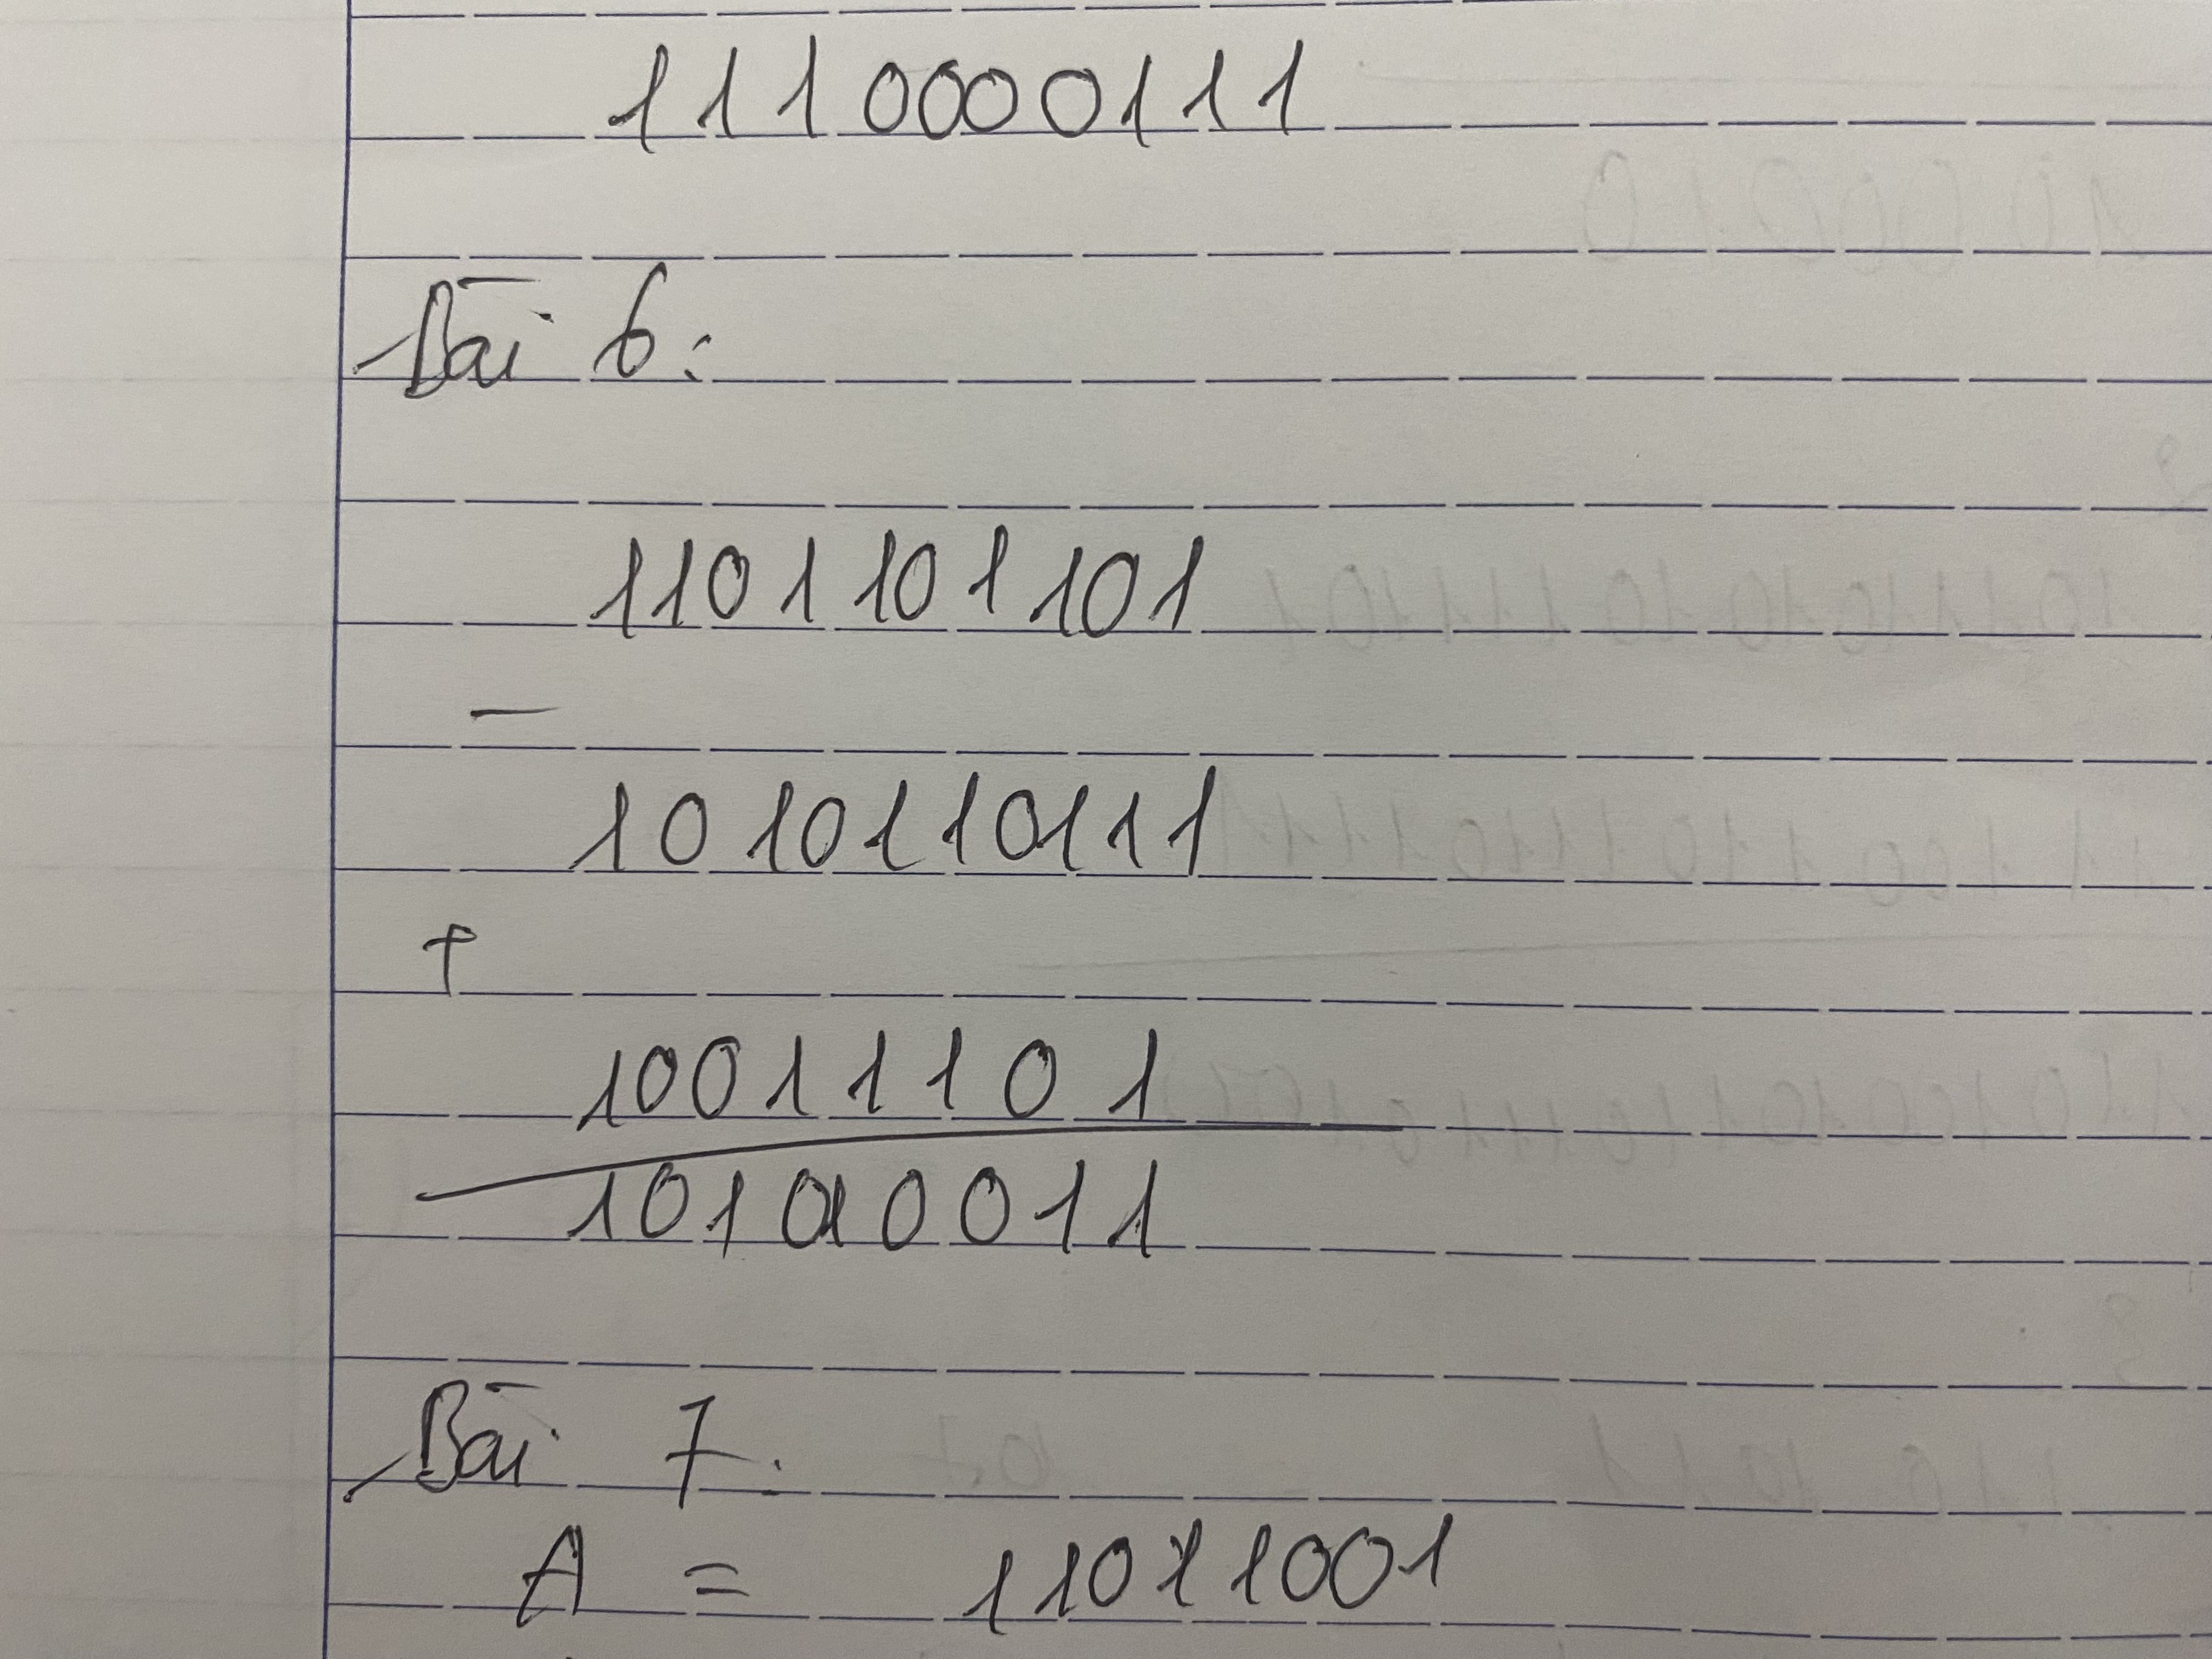 1110000111
Bài 6:
1101101101
−
1010110111
+
10011101
101010011
Bài 7:
A = 11011001